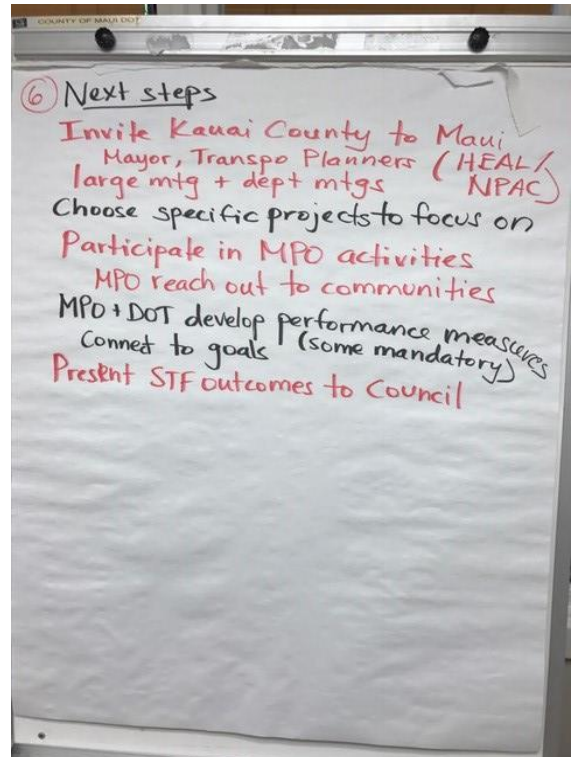 COUNTY OF MAUI DOT
6 Next steps
Invite Kauai County to Maui
Mayor, Transpo Planners (HEAL/
large mtg + dept mtgs NPAC)
Choose specific projects to focus on
Participate in MPO activities
MPO reach out to communities
MPO + DOT develop performance measures
Connect to goals (some mandatory)
Present STF outcomes to Council